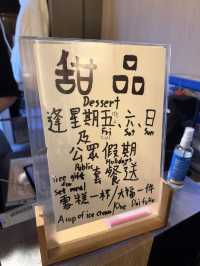 甜品
Dessert
逢星期五、六、日
Fri Sat Sun
及
公眾假期
Public Holidays
套餐送
set meal
雪糕一杯/大福一件
A cup of ice cream/One Daifuku